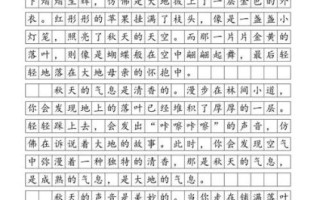 下熠熠生辉，仿佛是大地披上了一层金色的外
衣。红彤彤的苹果挂满了枝头，像是一盏盏小
灯笼，照亮了秋天的天空。而那一片片金黄的
落叶，则像是蝴蝶般在空中翩翩起舞，最后轻
轻地落在大地母亲的怀抱中。
秋天的气息是清香的。漫步在林间小道，
你会发现地上的落叶已经堆积了厚厚的一层。
轻轻踩上去，会发出“咔嚓咔嚓”的声音，仿
佛在诉说着大地的故事。此时，你会发现空气
中弥漫着一种独特的清香，那是秋天的气息，
是成熟的气息，是大地的气息。
秋天的声音是美妙的。当你走在铺满落